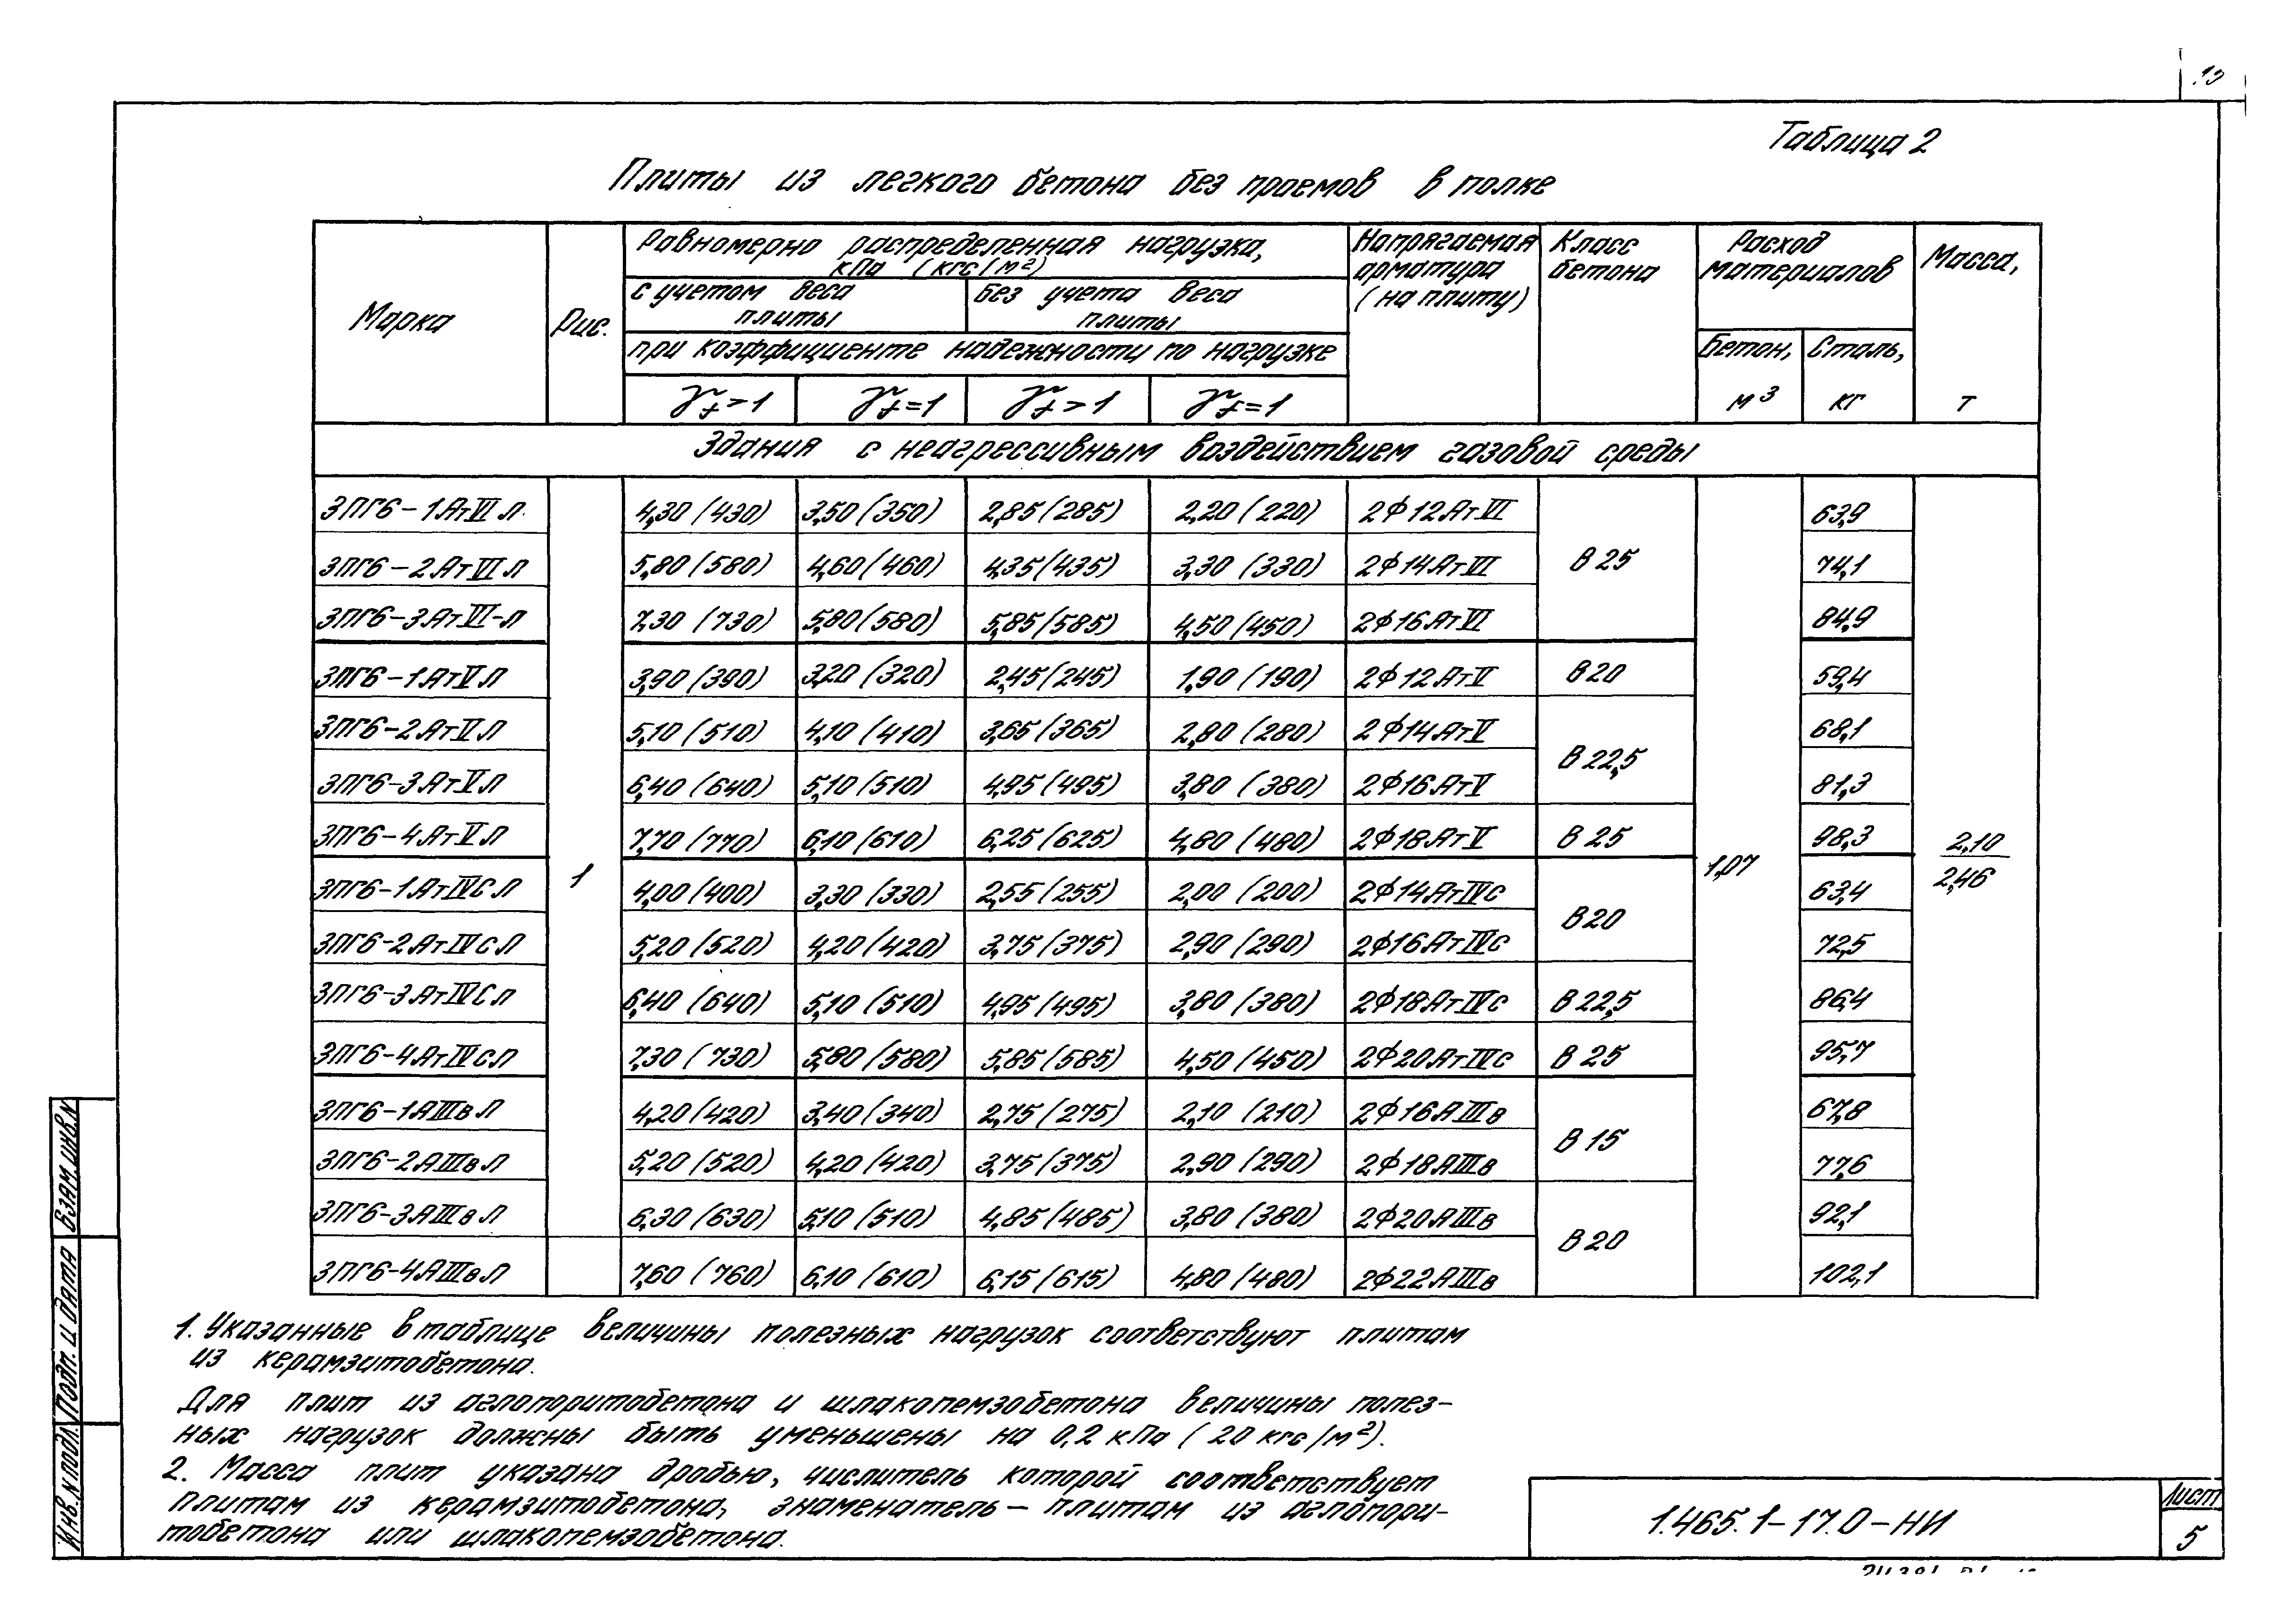 Таблица 2
Плиты из легкого бетона без проемов в полке
Марка
Рис.
Равномерно распределенная нагрузка,
кПа (кгс/м²)
с учетом веса
плиты
без учета веса
плиты
при коэффициенте надежности по нагрузке
γf>1 γf=1 γf>1 γf=1
Напрягаемая
арматура
(на плиту)
Класс
бетона
Расход
материалов
Бетон,
м³
Сталь,
кг
Масса,
т
Здания с неагрессивным воздействием газовой среды
3ПГ6-1АтVIЛ 4,30 (430) 3,50 (350) 2,85 (285) 2,20 (220) 2ф12АтVI 63,9
3ПГ6-2АтVIЛ 5,80 (580) 4,60 (460) 4,35 (435) 3,30 (330) 2ф14АтVI В25 74,1
3ПГ6-3АтVI-Л 7,30 (730) 5,80 (580) 5,85 (585) 4,50 (450) 2ф16АтVI 84,9
3ПГ6-1АтVЛ 3,90 (390) 3,20 (320) 2,45 (245) 1,90 (190) 2ф12АтV В20 59,4
3ПГ6-2АтVЛ 5,10 (510) 4,10 (410) 3,65 (365) 2,80 (280) 2ф14АтV 68,1
В22,5
3ПГ6-3АтVЛ 6,40 (640) 5,10 (510) 4,95 (495) 3,80 (380) 2ф16АтV 81,3
3ПГ6-4АтVЛ 7,70 (770) 6,10 (610) 6,25 (625) 4,80 (480) 2ф18АтV В25 98,3
1 1,07 2,10
2,46
3ПГ6-1АтIVСЛ 4,00 (400) 3,30 (330) 2,55 (255) 2,00 (200) 2ф14АтIVС 63,4
В20
3ПГ6-2АтIVСЛ 5,20 (520) 4,20 (420) 3,75 (375) 2,90 (290) 2ф16АтIVС 72,5
3ПГ6-3АтIVСЛ 6,40 (640) 5,10 (510) 4,95 (495) 3,80 (380) 2ф18АтIVС В22,5 86,4
3ПГ6-4АтIVСЛ 7,30 (730) 5,80 (580) 5,85 (585) 4,50 (450) 2ф20АтIVС В25 95,7
3ПГ6-1АIIIвЛ 4,20 (420) 3,40 (340) 2,75 (275) 2,10 (210) 2ф16АIIIв 67,8
В15
3ПГ6-2АIIIвЛ 5,20 (520) 4,20 (420) 3,75 (375) 2,90 (290) 2ф18АIIIв 77,6
3ПГ6-3АIIIвЛ 6,30 (630) 5,10 (510) 4,85 (485) 3,80 (380) 2ф20АIIIв 92,1
В20
3ПГ6-4АIIIвЛ 7,60 (760) 6,10 (610) 6,15 (615) 4,80 (480) 2ф22АIIIв 102,1
1. Указанные в таблице величины полезных нагрузок соответствуют плитам
из керамзитобетона.
Для плит из аглопоритобетона и шлакопемзобетона величины полез-
ных нагрузок должны быть уменьшены на 0,2 кПа (20 кгс/м²).
2. Масса плит указана дробью, числитель которой соответствует
плитам из керамзитобетона, знаменатель – плитам из аглопори-
тобетона или шлакопемзобетона.
Взам. инв. N
Подп. и дата
Инв. N подл.
1.465.1-17.0-НИ
Лист
5